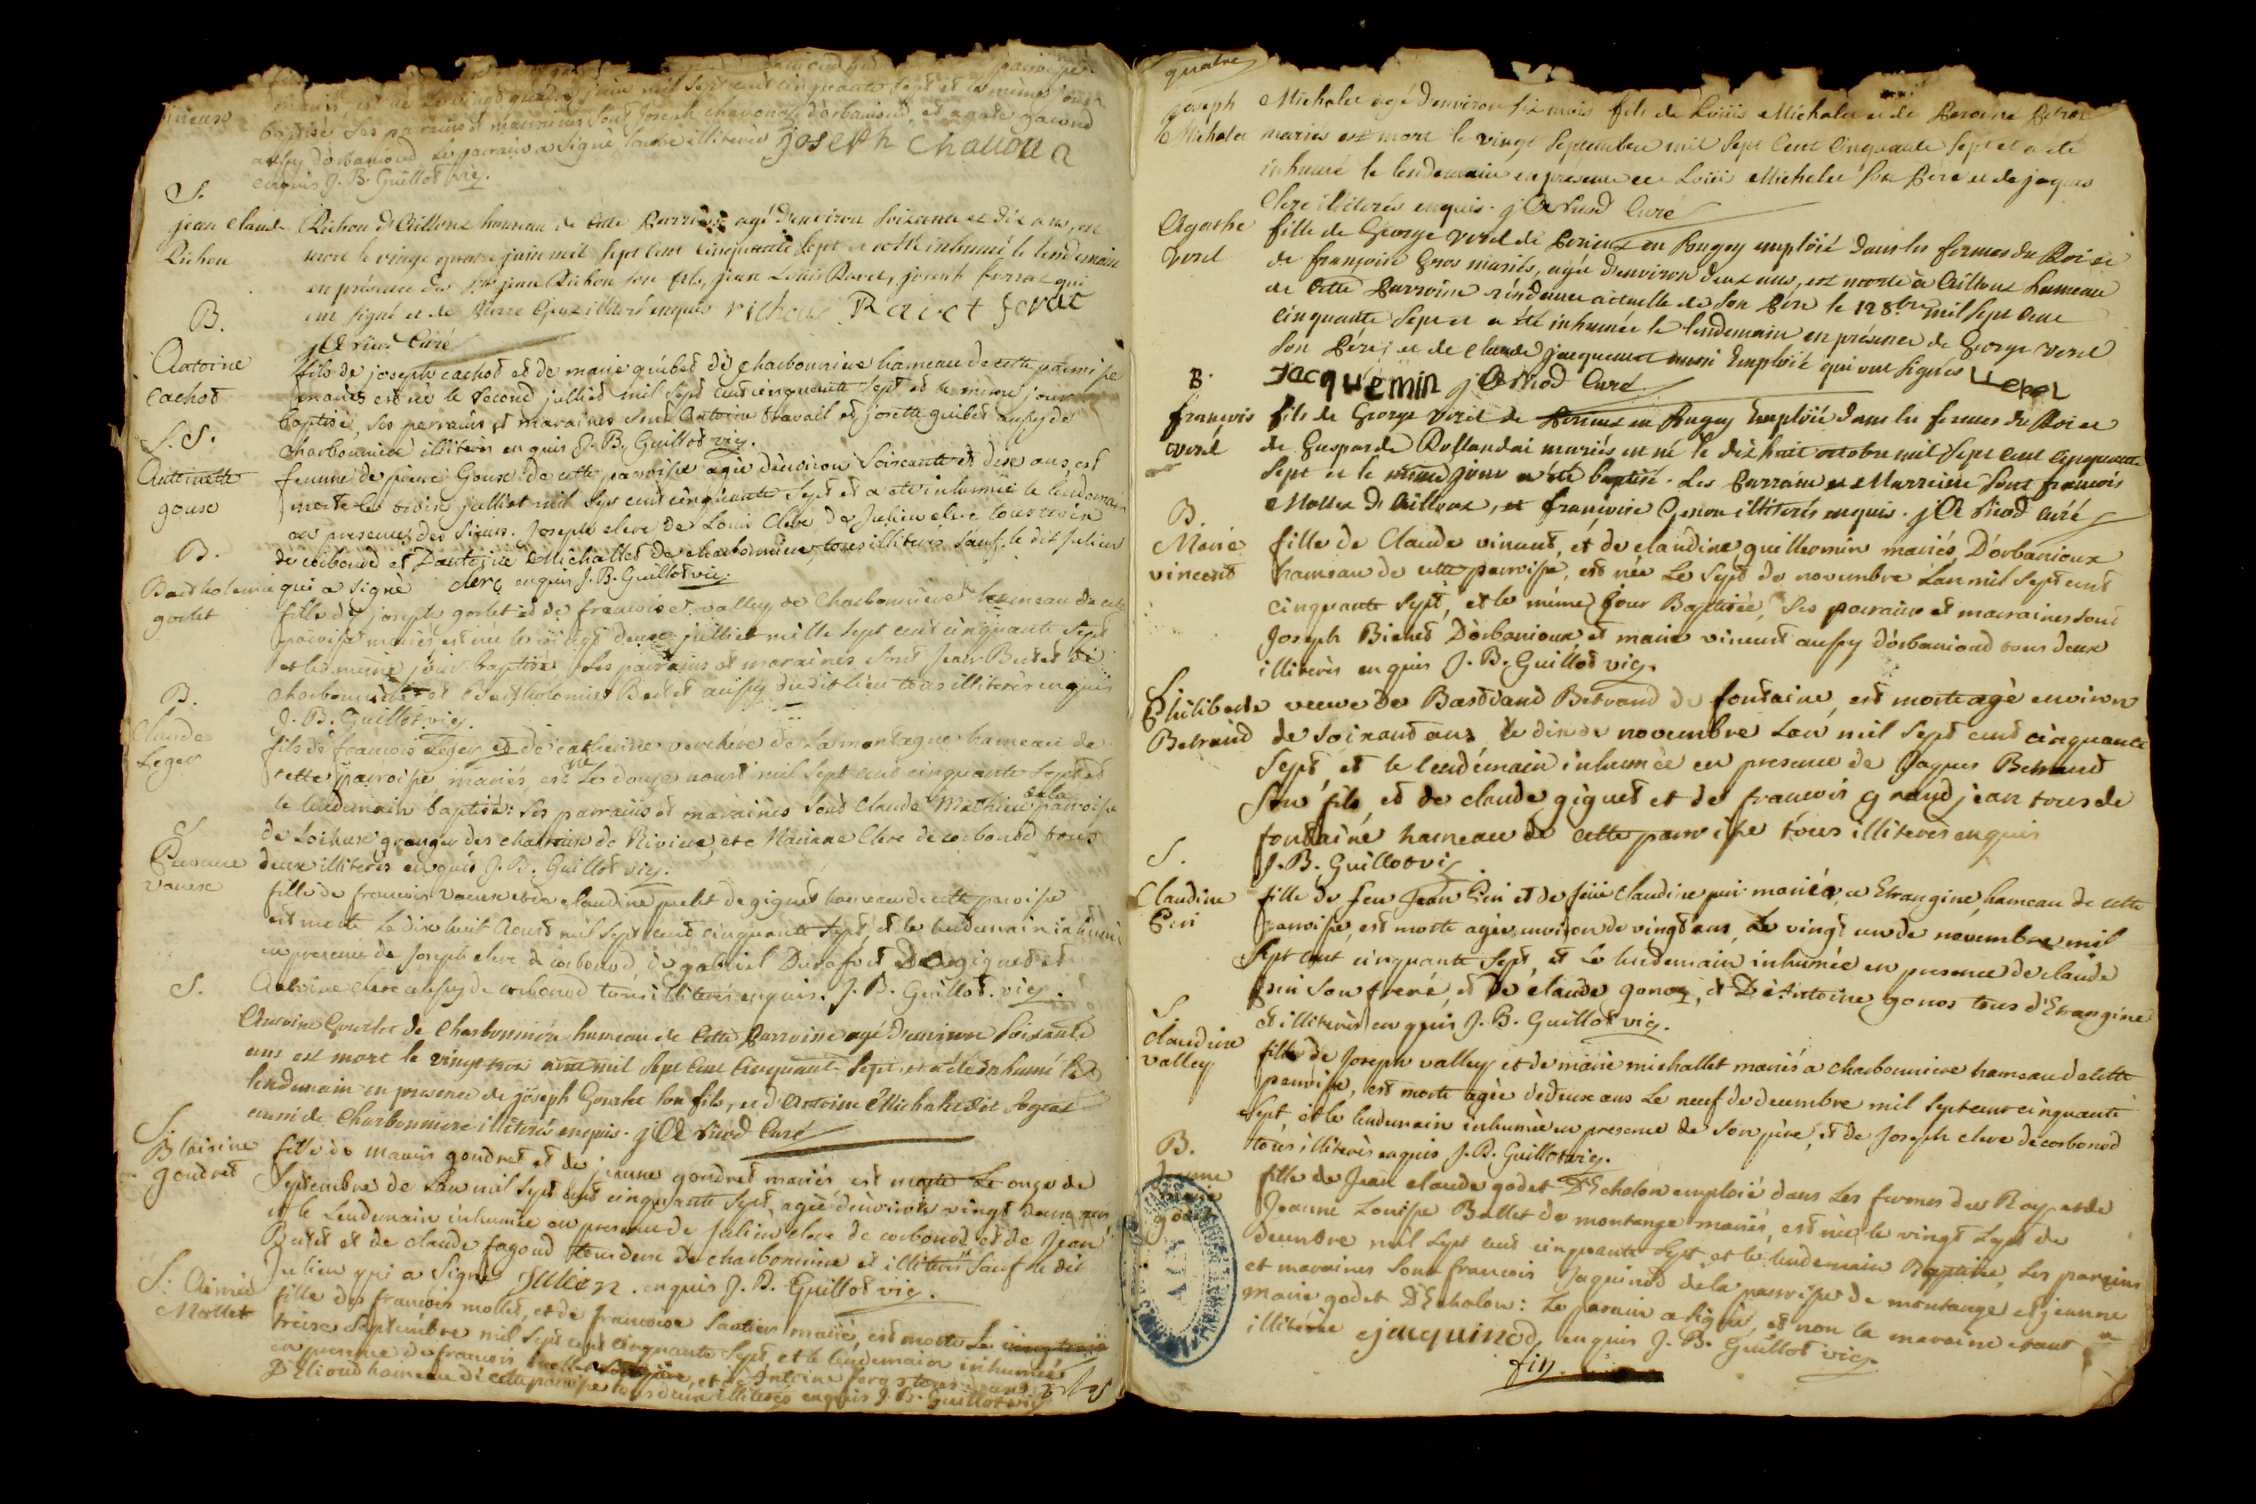 mariés est né le vingt quatre juin mil sept cent cinquante sept et le même jour
baptisé ses parrains et marraines sont Joseph chavanon d'orbanioud, et agate
aussy d'orbanioud le parrain a signé l'autre illiterée joseph chauona
enquis J. B. Guillot vic.
S.
jean claude Richon d'Ailloux hameau de cette Parroisse agé d'environ soixante et dix ans, est
Richon mort le vingt quatre juin mil sept cent cinquante sept et a été inhumé le lendemain
en présence du Sr jean Richon son fils, jean Louis Ravet, joseph forrat qui
ont signé et de Pierre illiteré enquis richon Ravet forat
Curé
B.
Antoine fils de joseph cachot et de marie quibet de charbonniere hameau de cette parroisse
cachot mariés est né le second julliet mil sept cent cinquante sept et le même jour
baptisé, ses parrains et maraines sont Antoine travail et josette quibet aussy de
charbonniere illiterés enquis J. B. Guillot vic.
S. S.
Antoinette femme de pierre Goux de cette parroisse agée d'environ soixante et dix ans, est
goux morte le trois julliet mil sept cent cinquante sept et a eté inhumée le lendemain
en presence des sieurs Joseph clerc de Louis Clerc de Julien clerc tous trois
de corbonod et D'antoine Michallet de charbonniere, tous illiterés sauf le dit julien
qui a signé clerc enquis J. B. Guillot vic.
B.
Bartholomie fille de joseph gorlet et de francoise valley de Charbonniere hameau de cette
gorlet paroisse mariés est née le vingt deux julliet mille sept cent cinquante sept
et le même jour baptisé ses parrains et maraines sont Jean Butet de
charbonniere et Bartholomie Butet aussy du dit lieu tous illiterés enquis
J. B. Guillot vic.
B.
Claude fils de francois Leger et de catherine verchere de La montagne hameau de
Leger cette parroisse mariés, est né Le douze aoust mil sept cent cinquante sept et
le lendemain baptisé: ses parrains et maraines sont Claude Mathieu de la parroisse
de Lochieux granger des chartreux de Riviere, et Mariane Clerc de corbonod tous
deux illiterés enquis J. B. Guillot vic.
S.
vaneux fille de francois Vaneux et de claudine pelet de gignet hameau de cette paroisse
est morte Le dix huit Aoust mil sept cent cinquante sept et le lendemain inhumée
en presence de Joseph clerc de corbonod de gabriel Dutafoet De gignet et
S. Antoine clerc aussy de corbonod tous illiterés enquis. J. B. Guillot. vic.
Antoine Gourlet de Charbonniere hameau de Cette Parroisse agé d'environ soixante
ans est mort le vingt trois aout mil sept cent cinquante sept, et a été inhumé le
lendemain en presence de joseph Gourlet son fils, et d'Antoine Michalet dit
aussi de Charbonniere illiterés enquis. Curé
S.
Blaisine fille de mauris goudret et de jeanne goudret mariés est morte Le onze de
goudret Septembre de L'an mil sept cent cinquante sept, agée d'environ vingt deux ans
et le Lendemain inhumée en presence de Julien clerc de corbonod et de Jean
Butet et de claude fagoud tous deux de charbonniere et illiterés sauf le dit
Julien qui a signé Julien. enquis J. B. Guillot vic.
S. Aimée fille de francois mollet, et de francoise Sautier mariés, est morte Le
Mollet treize Septembre mil sept cent cinquante sept et le lendemain inhumée
en presence de francois mollet son pere, et de Antoine
D'Elioud hameau de cette paroisse tous deux illiterés enquis J. B. Guillot vic.
quatre
joseph Michalet agé d'environ six mois fils de Loüis Michalet et de
Michalet mariés est mort le vingt septembre mil sept Cent Cinquante sept et a été
inhumé le lendemain en presence de Loüis Michalet son Pére et de jaques
Clerc illiterés enquis. Curé
Agathe fille de George Verel de en Bugey emploié dans les fermes du Roi et
Verel de françoise Gros mariés, agée d'environ deux ans, est morte à Ailloux hameau
de Cette Parroisse résidence actuelle de son Pére le 12 8bre mil sept Cent
cinquante sept et a été inhumée le lendemain en présence de George Verel
son Pére, et de Claude jacquemin aussi Emploié qui ont signés Verel
jacquemin Curé
B.
françois fils de George Verel de en Bugey Emploié dans les fermes du Roi et
Verel de Gasparde Rollandai mariés est né le dix huit octobre mil sept cent cinquante
sept et le même jour a été baptisé. Les Parrain et Marreine sont françois
Mollet d'Ailloux, et françoise Genou illiterés enquis. Curé
B.
Marie fille de Claude vincent, et de claudine guillermin mariés, D'orbanioux
vincent hameau de cette parroisse, est née Le sept de novembre L'an mil sept cent
cinquante sept, et le même jour Baptisée, ses parrains et maraines sont
Joseph Bichet D'orbanioux et marie vincent aussy d'orbanioud tous deux
illiterés enquis J. B. Guillot vic.
S.
Philiberte veuve de Bastiand Betrand de fontaine, est morte agé environ
Betrand de soixant ans, le dix de novembre Lan mil sept cent cinquante
sept, et le lendemain inhumée en presence de Jaques Betrand
son fils, et de claude giguet et de francois grandjean tous de
fontaine hameau de cette parroisse tous illiterés enquis
J. B. Guillot vic
S.
Claudine fille de feu Jean Pin et de feüe Claudine pin mariés, a Etrangine, hameau de cette
Pin parroisse, est morte agée environ de vingt ans, Le vingt un de novembre mil
sept cent cinquante sept, et Le lendemain inhumée en presence de claude
pin son frere, et de claude gonoz, et De Antoine gonos tous d'Etrangine
et illiterés enquis J. B. Guillot vic.
S.
claudine fille de Joseph valley et de marie michallet mariés a charbonniere hameau de cette
valley parroisse, est morte agée de deux ans Le neuf de decembre mil sept cent cinquante
sept, et le lendemain inhumée en presence de son père, et de Joseph clerc de corbonod
tous illiterés enquis J. B. Guillot vic.
B.
Jeanne fille de Jean claude godet D'Echalon emploié dans Les fermes du Roy et de
marie Jeanne Louise Ballet de montange mariés, est née le vingt sept de
godet decembre mil sept cent cinquante sept et le lendemain Baptisée, Les parrains
et maraines sont francois Jaquinod de la parroisse de montange et jeanne
marie godet D'Echalon: Le parain a signé, et non la maraine etant
illiterée jacquinod, enquis J. B. Guillot vic.
fin.